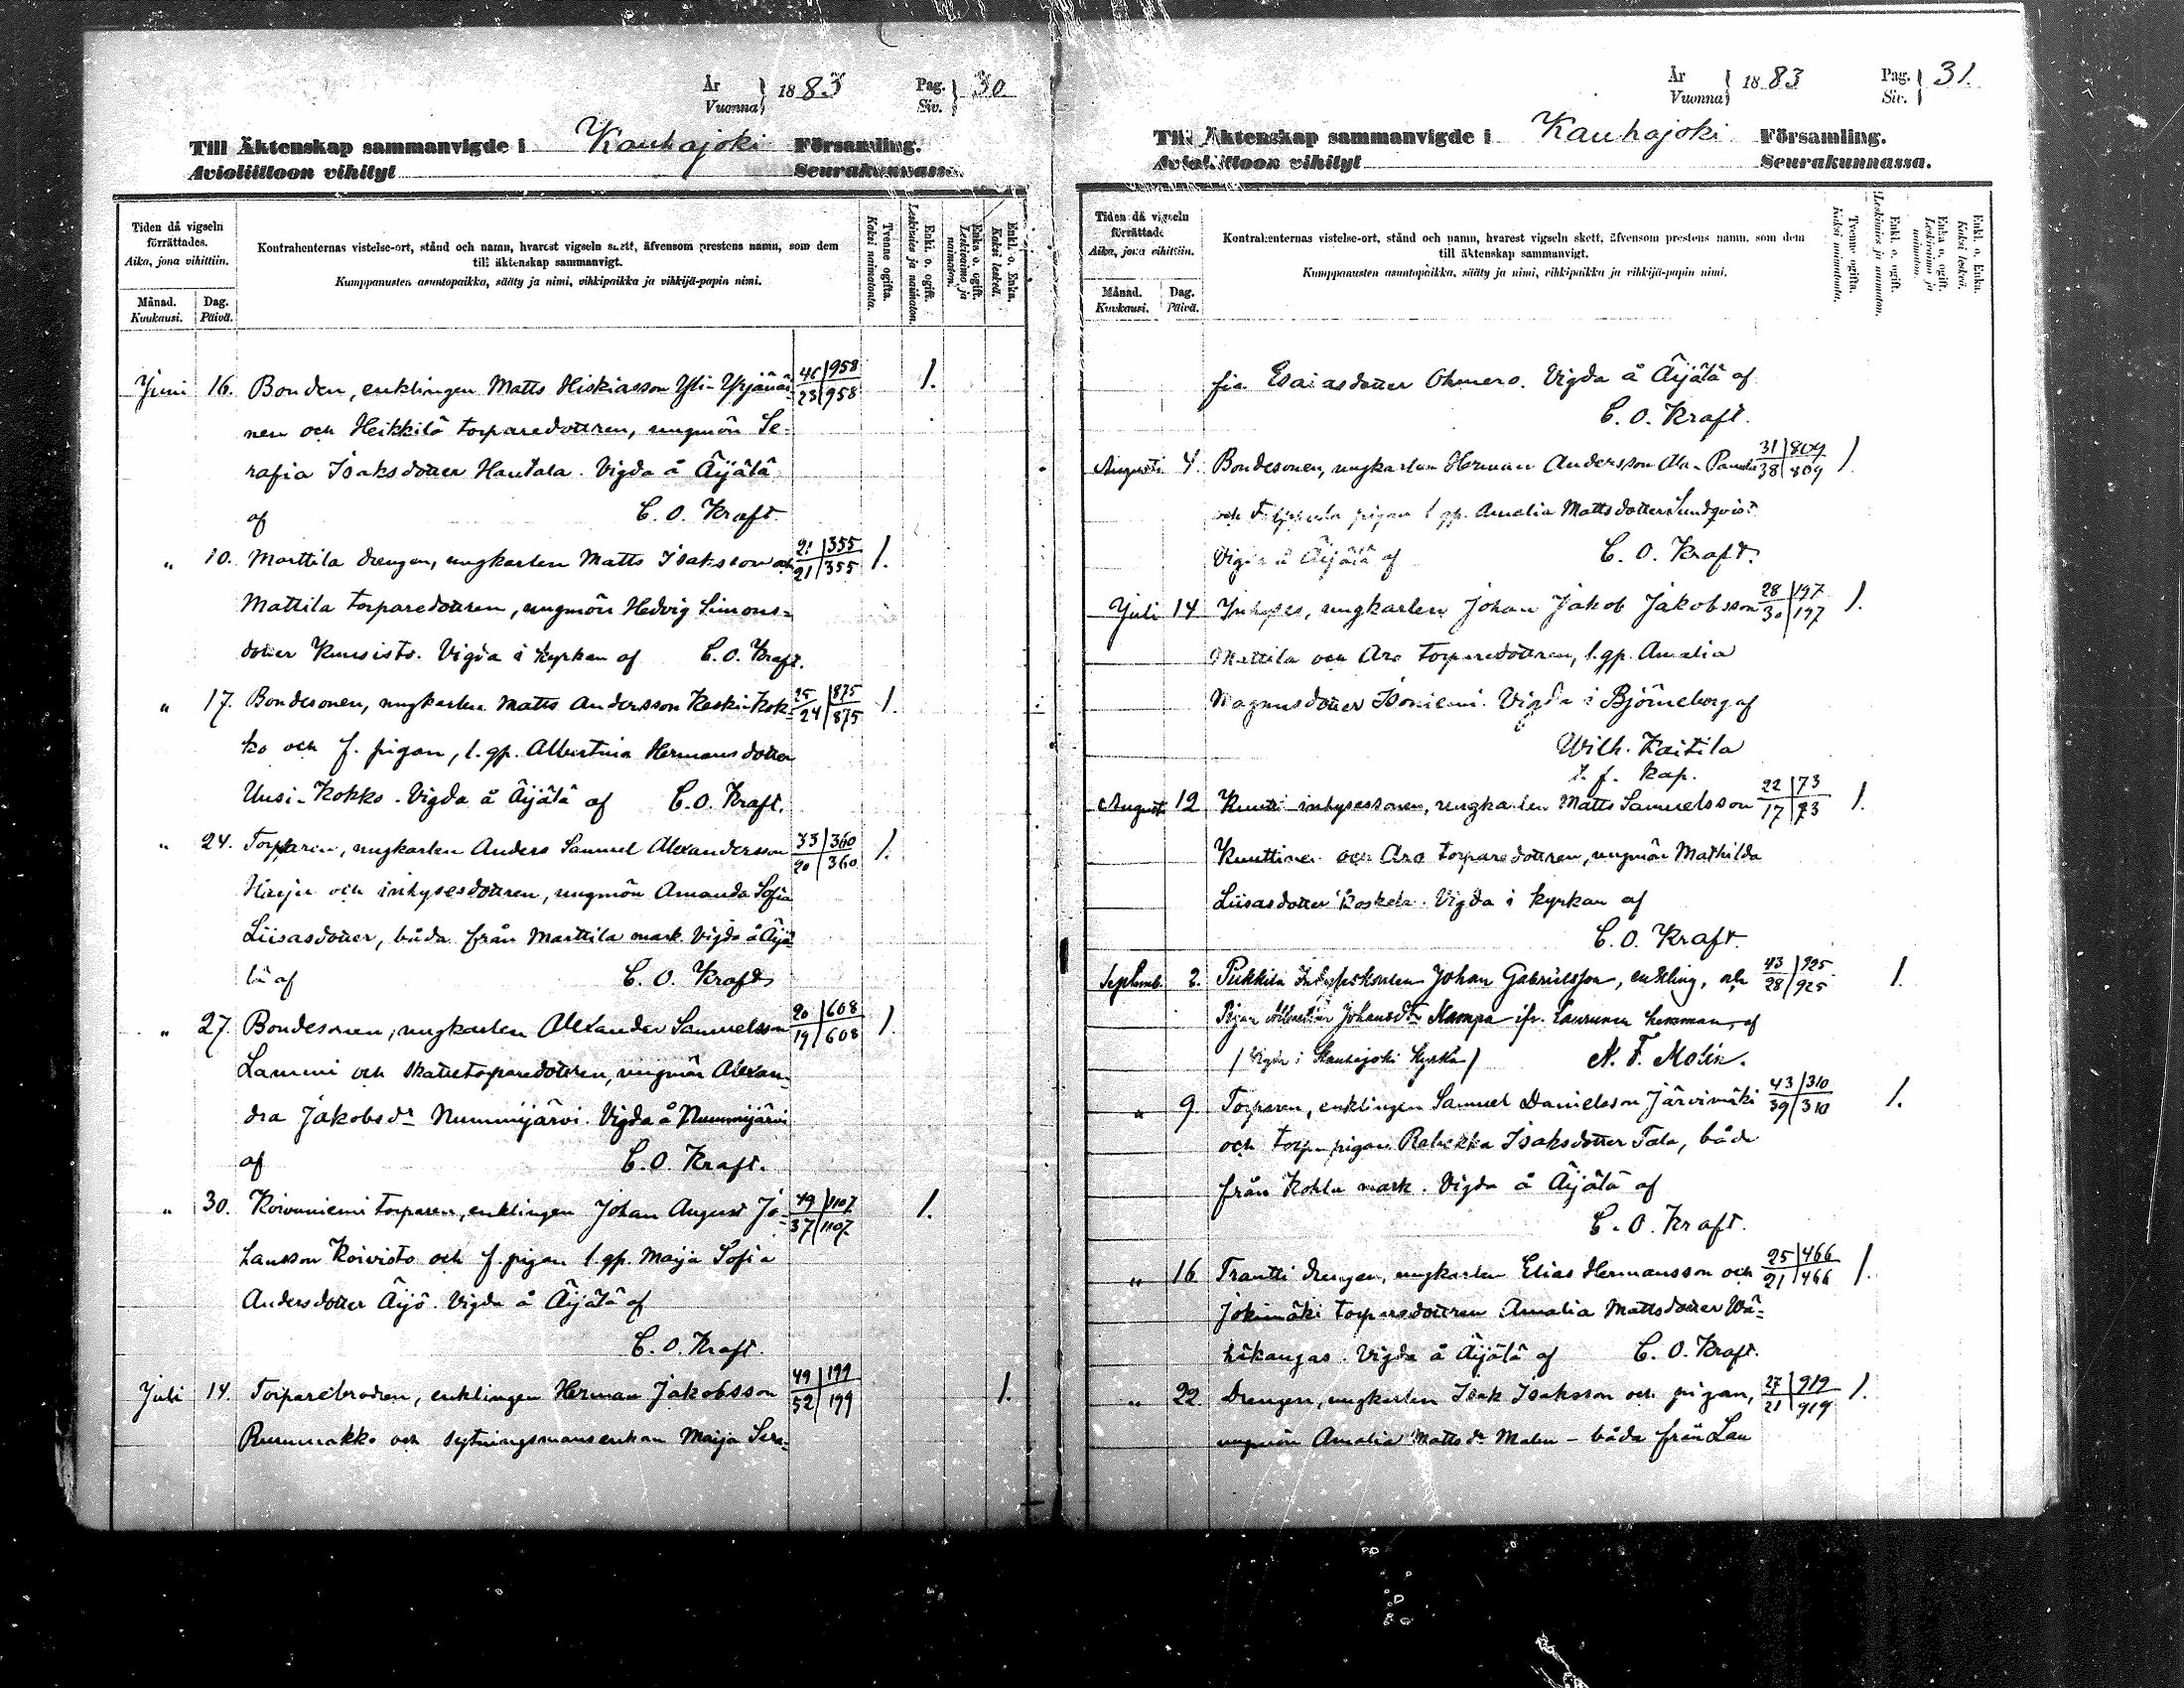 År
Vuonna } 1883 Pag.
Siv. } 30
Till Äktenskap sammanvigde i Kauhajoki Församling.
Avioliittoon vihityt Seurakunnassa.
Tiden då vigseln
förrättades.
Aika, jona vihittiin.
Månad.
Kuukausi.
Dag.
Päivä.
Kontrahenternas vistelse-ort, stånd och namn, hvarest vigseln skett, äfvensom prestens namn, som dem
till äktenskap sammanvigt.
Kumppanusten asuntopaikka, sääty ja nimi, vihkipaikka ja vihkijä-papin nimi.
Tvenne ogifta.
Kaksi naimadonta.
Enkl. o. ogift.
Leskimies ja naimaton.
Enka o. ogift.
Leskivaimo ja
naimaton.
Enkl. o. Enka.
Kaksi leskeä.
Juni 16. Bonden, enklingen Matts Hiskiasson Yli-Yrjänäi- 46/958 1.
nen och Heikkilä torparedottren, ungmön Se- 23/958
rafia Isaksdotter Hautala. Vigda å Äijälä
af C. O. Kraft.
" 10. Marttila drengen, ungkarlen Matts Isaksson och 21/355 1.
Mattila torparedottren, ungmön Hedvig Simons- 21/355
dotter Kuusisto. Vigda i kyrkan af C. O. Kraft.
" 17. Bondesonen, ungkarlen Matts Andersson Keski-Kok- 25/875 1.
ko och f. pigan, l. qp. Albertina Hermansdotter 24/875
Uusi-Kokko. Vigda å Äijälä af C. O. Kraft.
" 24. Torparen, ungkarlen Anders Samuel Alexandersson 33/360 1.
Harju och inhysesdottren, ungmön Amanda Sofia 20/360
Liisasdotter, båda från Marttila mark. Vigda å Äijä
lä af C. O. Kraft
" 27. Bondesonen, ungkarlen Alexander Samuelsson 20/608 1.
Lammi och skattetorparedottren, ungmön Alexan- 19/608
dra Jakobsdr Nummijärvi. Vigda å Nummijärvi
af C. O. Kraft.
" 30. Koivuniemi torparen, enklingen Johan August Jo- 49/1107 1.
hansson Koivisto och f. pigan l. qp. Maija Sofia 37/1107.
Andersdotter Äijö. Vigda å Äijälä af
C. O. Kraft.
Juli 14. Torparebrodren, enklingen Herman Jakobsson 49/199 1.
Rummakko och sytningsmansenkan Maija Sera- 52/199
År
Vuonna } 1883 Pag.
Siv. } 31.
Till Äktenskap sammanvigde i Kauhajoki Församling.
Avioliittoon vihityt Seurakunnassa.
Tiden då vigseln
förrättades
Aika, jona vihittiin.
Månad.
Kuukausi.
Dag.
Päivä.
Kontrahenternas vistelse-ort, stånd och namn, hvarest vigseln skett, äfvensom prestens namn, som dem
till äktenskap sammanvigt.
Kumppanusten asuntopaikka, sääty ja nimi, vihkipaikka ja vihkijä-papin nimi.
Tvenne ogifta.
Kaksi naimatonta.
Enkl. o. ogift.
Leskimies ja naimaton.
Enka o. ogift.
Leskivaimo ja
naimaton.
Enkl. o. Enka.
Kaksi leskeä.
fia Esaiasdotter Ohmero. Vigda å Äijälä af
C. O. Kraft.
Augusti 4. Bondesonen, ungkarlen Herman Andersson Ala-Panula 31/809 1.
och pigan l. qp. Amalia Mattsdotter Sundqvist 38/809
Vigda å Äijälä af C. O. Kraft.
Juli 14 Inhyses, ungkarlen Johan Jakob Jakobsson 28/197 1.
Mattila och Aro torparedottren, l. qp. Amalia 30/197
Magnusdotter Isoniemi. Vigda i Björneborg af
Wilh. Kaitila
t. f. kap.
August 12 Knutti inhysessonen, ungkarlen Matts Samuelsson 22/73 1.
Knuttinen och Aro torparedottren, ungmön Mathilda 17/73
Liisasdotter Koskela. Vigda i kyrkan af
C. O. Kraft.
Septemb. 2. Johan Gabrielsson, enkling, och 43/925 1.
Pigan Johansdtr Kampa ifr. hemman, af 28/925
/ Vigda i Kauhajoki Kyrka / N. F. Molin.
" 9. Torparen, enklingen Samuel Danielsson Järvimäki 43/310 1.
och pigan Rebekka Isaksdotter Tala, båda 39/310
från Kohlu mark. Vigda å Äijälä af
C. O. Kraft.
" 16 Trantti drengen, ungkarlen Elias Hermansson och 25/466 1.
Jokimäki torparedottren Amalia Mattsdotter Wä- 21/466
häkangas. Vigda å Äijälä af C. O. Kraft.
" 22. Drengen, ungkarlen Isak Isaksson och pigan, 27/919 1.
ungmön Amalia Mattsdr Malm - båda från Lau 21/919